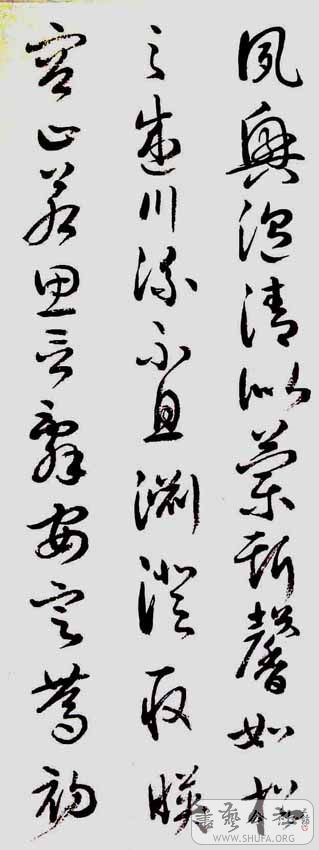 夙興温清似蘭斯馨如松
之盛川流不息渊澄取暎
容止若思言辞安定篤初
書藝公社
WWW.SHUFA.ORG